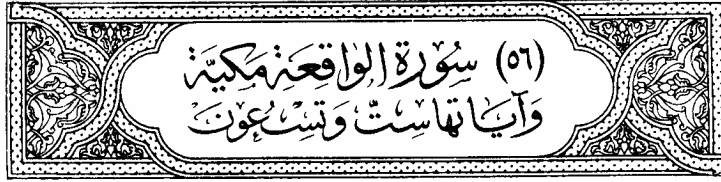 (٥٦) سُوْرَة الوَاقِعَة مَكيَّة
وَآيَاتهَا سِتّ وَتِسْعُونَ